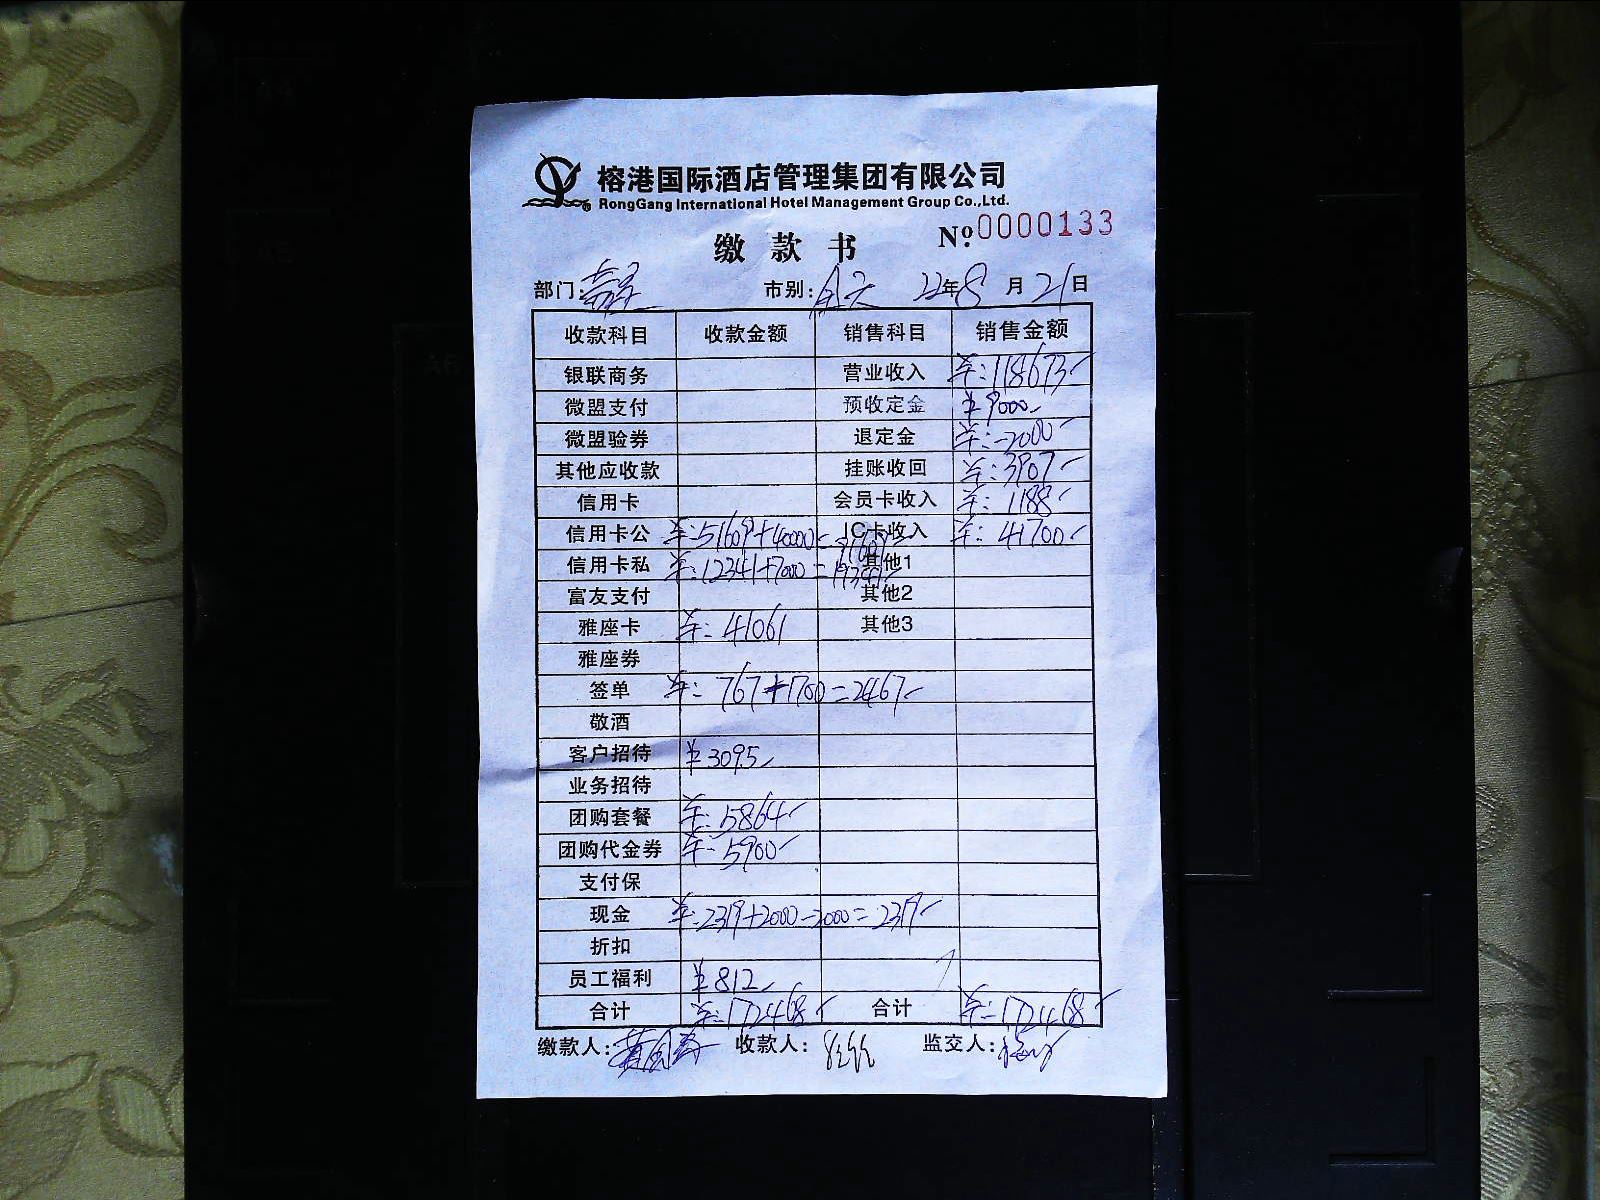 榕港国际酒店管理集团有限公司
RongGang International Hotel Management Group Co.,Ltd.
缴款书 Nº:0000133
部门: 市别:全天 22年8月21日
收款科目 收款金额 销售科目 销售金额
银联商务 营业收入 ¥:118673
微盟支付 预收定金 ¥9000
微盟验券 退定金 ¥:-2000
其他应收款 挂账收回 ¥:3907
信用卡 会员卡收入 ¥:1188
信用卡公 ¥:51609+40000=91609 IC卡收入 ¥:41700
信用卡私 ¥:12341+7000=19341 其他1
富友支付 其他2
雅座卡 ¥:41061 其他3
雅座券
签单 ¥:767+1700=2467
敬酒
客户招待 ¥3095
业务招待
团购套餐 ¥:5864
团购代金券 ¥:5900
支付保
现金 ¥:2319+2000-2000=2319
折扣
员工福利 ¥812
合计 ¥:172468 合计 ¥:172468
缴款人: 收款人: 监交人: